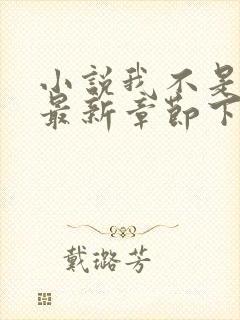 小说我不是
最新章节下
戴璐芳